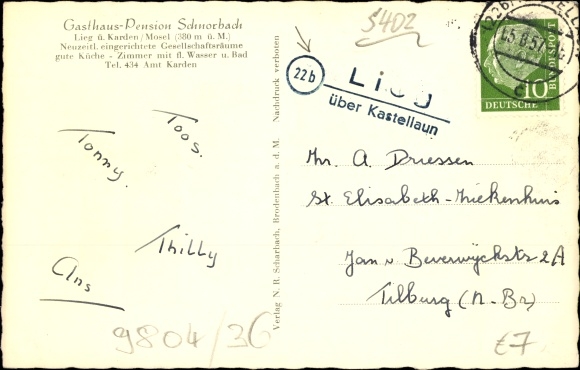 Gasthaus-Pension Schnorbach
Lieg ü. Karden/Mosel (380 m ü. M.)
Neuzeitl. eingerichtete Gesellschaftsräume
gute Küche - Zimmer mit fl. Wasser u. Bad
Tel. 434 Amt Karden
Toos.
Tonny.
Thilly
Ans
9804/36
Verlag N. B. Scharbach, Brodenbach a. d. M. Nachdruck verboten
5402
22b
Lieg
über Kastellaun
10
DEUTSCHE
BUNDESPOST
Mr. A. Driessen
St. Elisabeth-Ziekenhuis
Jan v Beverwijckstr 2A
Tilburg (N-Br)
£7